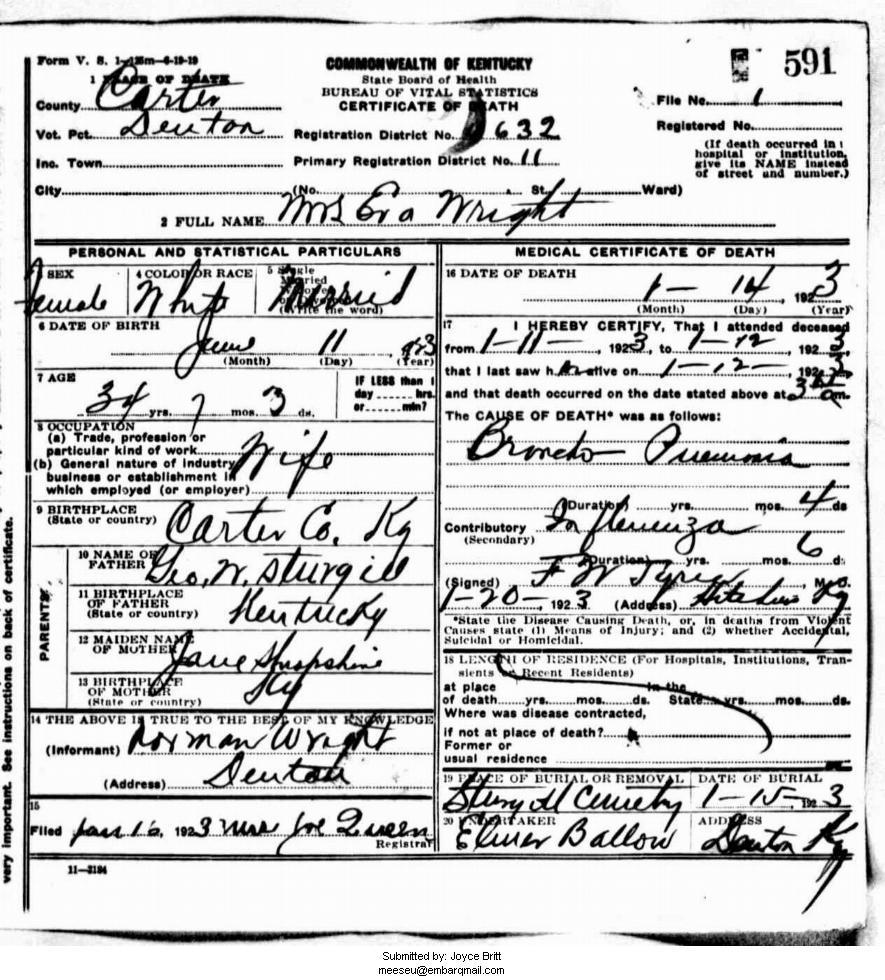 Form V. S. 1-125m-6-19-19
COMMONWEALTH OF KENTUCKY
State Board of Health
BUREAU OF VITAL STATISTICS
CERTIFICATE OF DEATH
591
1 PLACE OF DEATH
County Carter
File No. 1
Vot. Pct. Denton
Registration District No. 632
Registered No.
(If death occurred in
hospital or institution,
give its NAME instead
of street and number.)
Inc. Town
Primary Registration District No. 11
City (No. St. Ward)
2 FULL NAME Mrs Eva Wright
PERSONAL AND STATISTICAL PARTICULARS
3 SEX Female
4 COLOR OR RACE White
5 Single
Married
Widowed
or Divorced
(Write the word)
Married
6 DATE OF BIRTH
June 11 1923
(Month) (Day) (Year)
7 AGE
34 yrs. 7 mos. 3 ds.
IF LESS than 1
day hrs.
or min?
8 OCCUPATION
(a) Trade, profession or
particular kind of work
(b) General nature of industry
business or establishment in
which employed (or employer)
Wife
9 BIRTHPLACE
(State or country)
Carter Co. Ky
PARENTS
10 NAME OF
FATHER
Geo. W. Sturgill
11 BIRTHPLACE
OF FATHER
(State or country)
Kentucky
12 MAIDEN NAME
OF MOTHER
Jane Shropshire
13 BIRTHPLACE
OF MOTHER
(State or country)
Ky
14 THE ABOVE IS TRUE TO THE BEST OF MY KNOWLEDGE
(Informant) Norman Wright
(Address) Denton
15
Filed Jan 16, 1923 Mrs Joe Queen
Registrar
11-3184
MEDICAL CERTIFICATE OF DEATH
16 DATE OF DEATH
1- 14, 1923
(Month) (Day) (Year)
17 I HEREBY CERTIFY, That I attended deceased
from 1-11-, 1923, to 1-12, 1923
that I last saw her alive on 1-12-, 1923
and that death occurred on the date stated above at 3 am.
The CAUSE OF DEATH* was as follows:
Broncho Pneumonia
(Duration) yrs. mos. 4 ds
Contributory Influenza
(Secondary)
(Duration) yrs. mos. 6 d
(Signed) F W M. D.
1-20-, 1923 (Address) Hitchins Ky
*State the Disease Causing Death, or, in deaths from Violent
Causes state (1) Means of Injury; and (2) whether Accidental,
Suicidal or Homicidal.
18 LENGTH OF RESIDENCE (For Hospitals, Institutions, Tran-
sients or Recent Residents)
at place In the
of death yrs. mos. ds. State yrs. mos. ds.
Where was disease contracted,
if not at place of death?
Former or
usual residence
19 PLACE OF BURIAL OR REMOVAL
Sturgill Cemetry
DATE OF BURIAL
1-15-, 1923
20 UNDERTAKER
Elmer Ballow
ADDRESS
Denton Ky
very important. See instructions on back of certificate.
Submitted by: Joyce Britt
meeseu@embarqmail.com